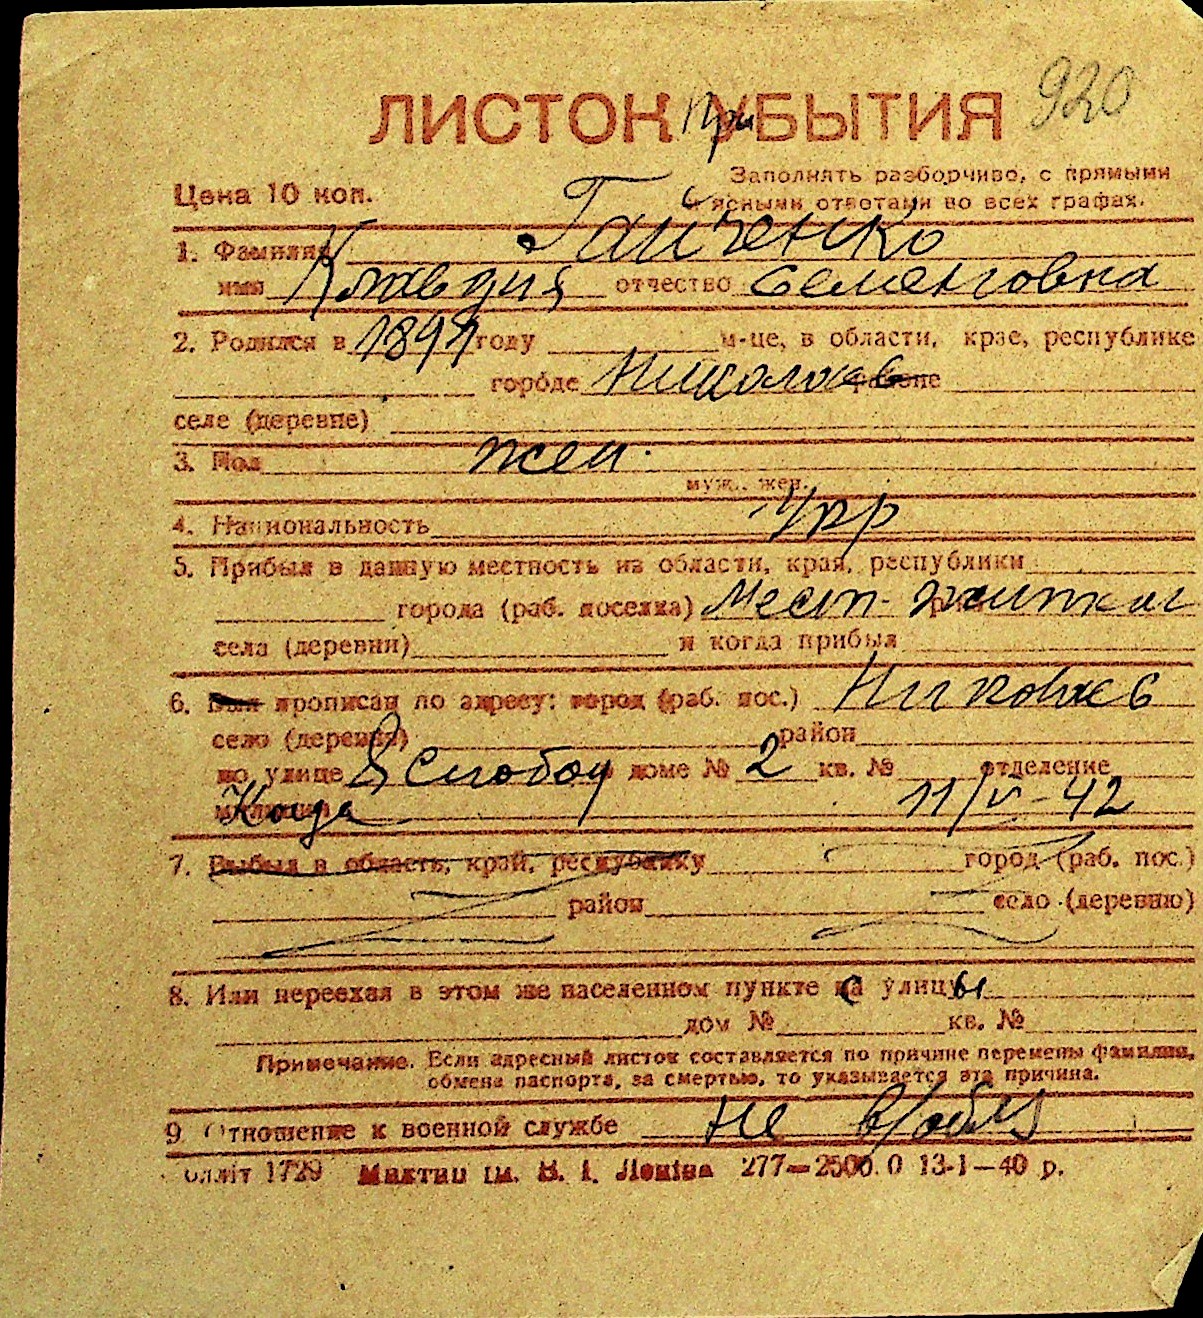 920
ЛИСТОК При УБЫТИЯ
Цена 10 коп.
Заполнять разборчиво, с прямыми
и ясными ответами во всех графах.
1. Фамилия Гайченко
имя Клавдия отчество Семеновна
2. Родился в 1897 году м-це, в области, крае, республике
городе Николаев районе
селе (деревне)
3. Пол жен.
муж., жен.
4. Национальность Укр
5. Прибыл в данную местность из области, края, республики
города (раб. поселка) Мест-
села (деревни) и когда прибыл
6. Был прописан по адресу: город (раб. пос.) Николаев
село (деревня) район
по улице 8 Слобод доме № 2 кв. № отделение
милиции Когда 11/V-42
7. Выбыл в область, край, республику город (раб. пос.)
район село (деревню)
8. Или переехал в этом же населенном пункте с улицы
дом № кв. №
Примечание. Если адресный листок составляется по причине перемены фамилии,
обмена паспорта, за смертью, то указывается эта причина.
9. Отношение к военной службе не в/обяз
1729 Миктип ім. В. І. Леніна 277—2500.0 13-1—40 р.